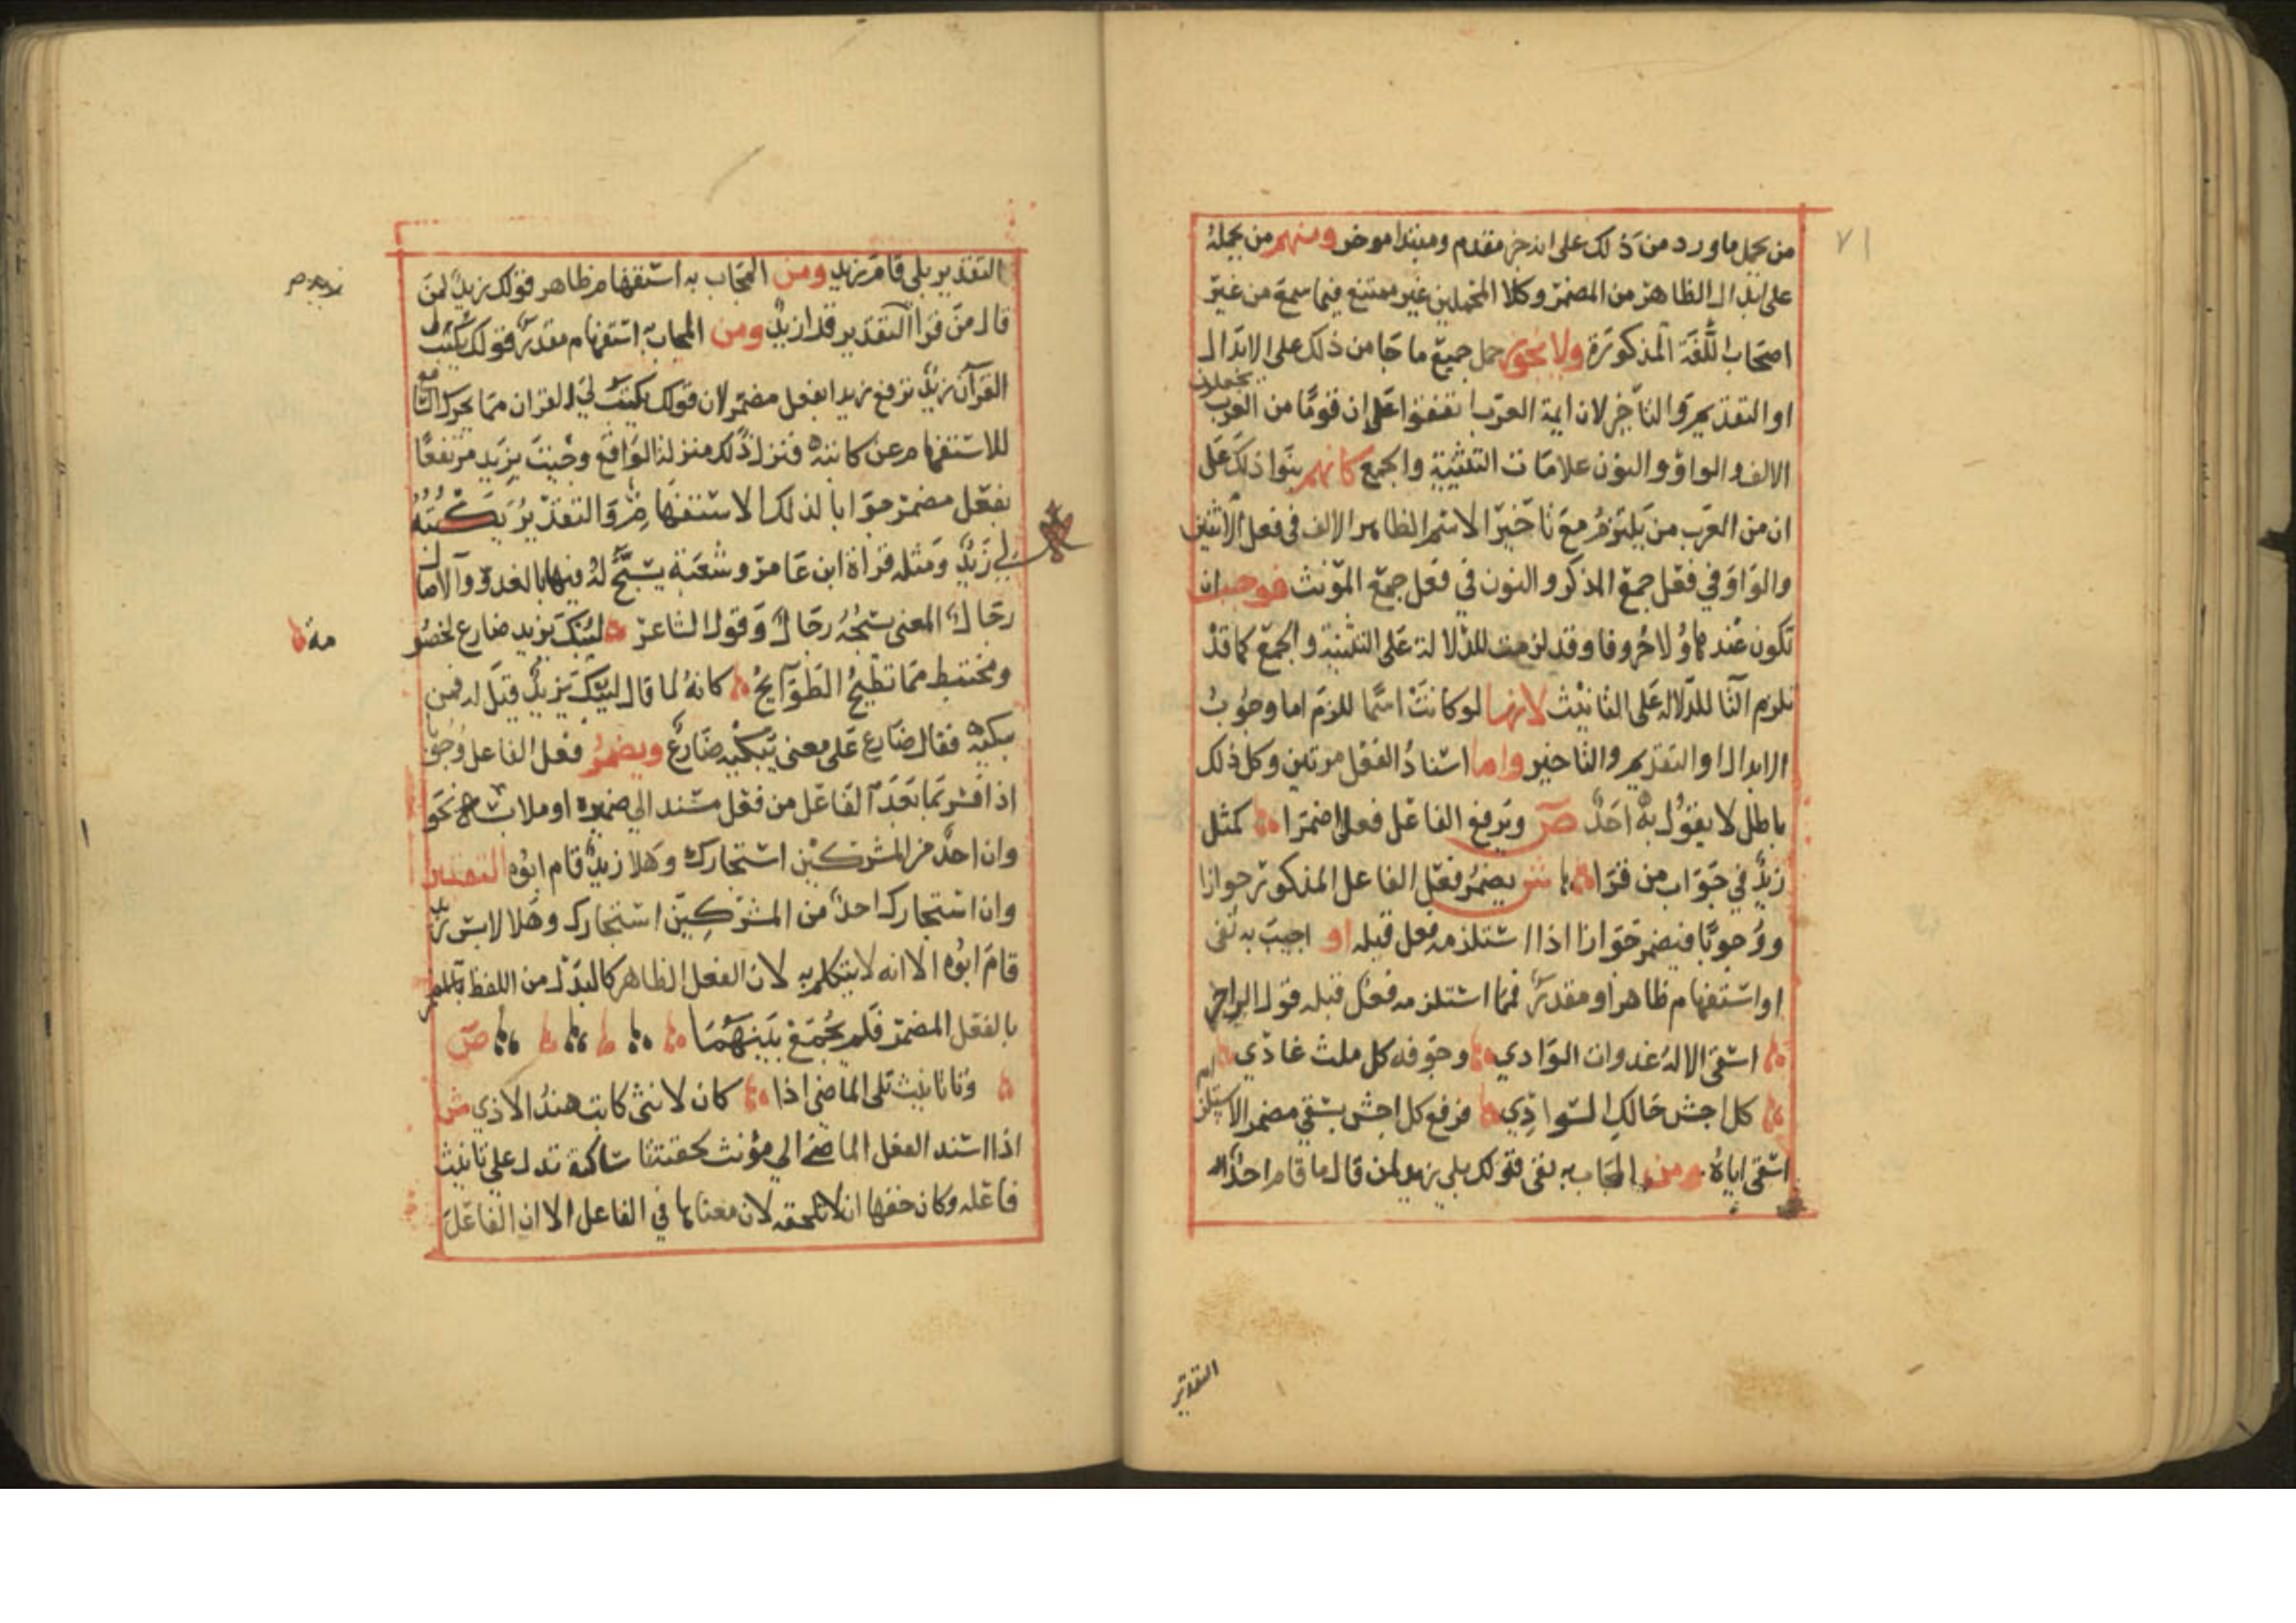 ٧١
من يحمل ما ورد من ذلك على انه خبر مقدم ومبتدا موخر ومنهم من يحمله
على ابدال الظاهر من المضمر وكلا المحملين غير ممتنع فيما سمع من غير
اصحاب اللغة المذكورة ولا يجوز حمل جميع ما جا من ذلك على الابدال
او التقديم والتاخير لان ايمة العرب اتفقوا على ان قوما من العرب يجعلون
الالف والواو والنون علامات التثنية والجمع كانهم بنوا ذلك على
ان من العرب من يلتزم مع تاخير الاسم الظاهر الالف في فعل الاثنين
والواو في فعل جمع المذكر والنون في فعل جمع المونث فوجب ان
تكون عند هاولا حروفا وقد لزمت للدلالة على التثنية والجمع كما قد
تلزم التا للدلاله على التانيث لانها لو كانت اسما للزم اما وجوب
الابدال او التقديم والتاخير واما اسناد الفعل مرتين وكل ذلك
باطل لا يقول به احد ص ويرفع الفاعل فعل اضمرا كمثل
زيد في جواب من قرا ش يضمر فعل الفاعل المذكور جوازا
ووجوبا فيضمر جوازا اذا استلزمه فعل قبله او اجيب به نفي
او استفهام ظاهر او مقدر فمما استلزمه فعل قبله قول الراجز
اسقى الاله عدوات الوادي وجوفه كل ملث غادي
كل اجش حالك السوادي فرفع كل اجش بسقي مضمر الاستلزام
اسقى اياه ومن المجاب به نفي قولك بلى زيد لمن قال ما قام احد
التقدير
التقدير بلى قام زيد ومن المجاب به استفهام ظاهر قولك زيد لمن
قال من قرا التقدير قرا زيد ومن المجاب به استفهام مقدر قولك يكتب لي
القرآن زيد ترفع زيدا بفعل مضمر لان قولك يكتب لي القران مما يحرك السامع
للاستفهام عن كاتبه فنزل ذلك منزلة الواقع وجيت بزيد مرتفعا
بفعل مضمر جوابا لذلك الاستفهام والتقدير يكتبه
لي زيد ومثله قراة ابن عامر وشعبة يسبح له فيها بالغدو والآصال
رجال المعنى يسبحه رجال وقول الشاعر ليبك يزيد ضارع لخصو
مة
ومختبط مما تطيح الطوآيح كانه لما قال ليبك يزيد قيل له فمن
يبكيه فقال ضارع على معنى يبكيه ضارع ويضمر فعل الفاعل وجوبا
اذا فسر بما بعد الفاعل من فعل مسند الى ضميره او ملابسه نحو
وان احد من المشركين استجارك وهلا زيد قام ابوه التقدير
وان استجارك احد من المشركين استجارك وهلا لابس زيد
قام ابوه الا انه لا يتكلم به لان الفعل الظاهر كالبدل من اللفظ
بالفعل المضمر فلم يجمع بينهما ص
وتا تانيث تلى الماضي اذا كان لانثى كابت هند الاذي ش
اذا اسند الفعل الماضي الي مؤنث لحقته تا ساكنة تدل على تانيث
فاعله وكان حقها ان لا تلحقه لان معناها في الفاعل الا ان الفاعل